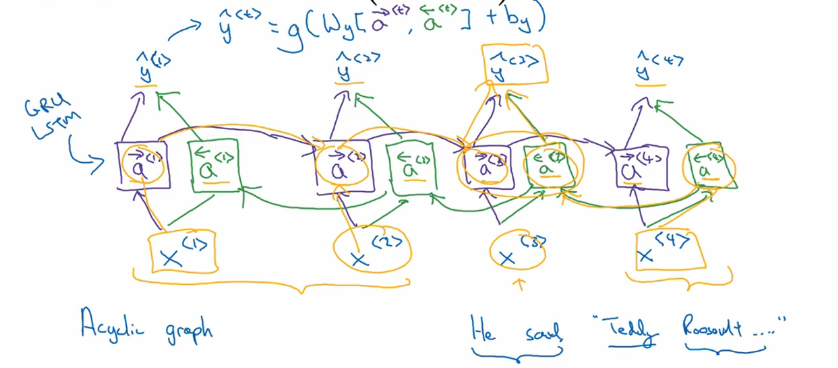 ŷ<t> = g(Wy[a→<t>, a←<t>] + by)
ŷ<1> ŷ<2> ŷ<3> ŷ<4>
GRU
LSTM
a→<1> a←<1> a→<2> a←<2> a→<3> a←<3> a→<4> a←<4>
x<1> x<2> x<3> x<4>
Acyclic graph
He said "Teddy Roosevelt ...."